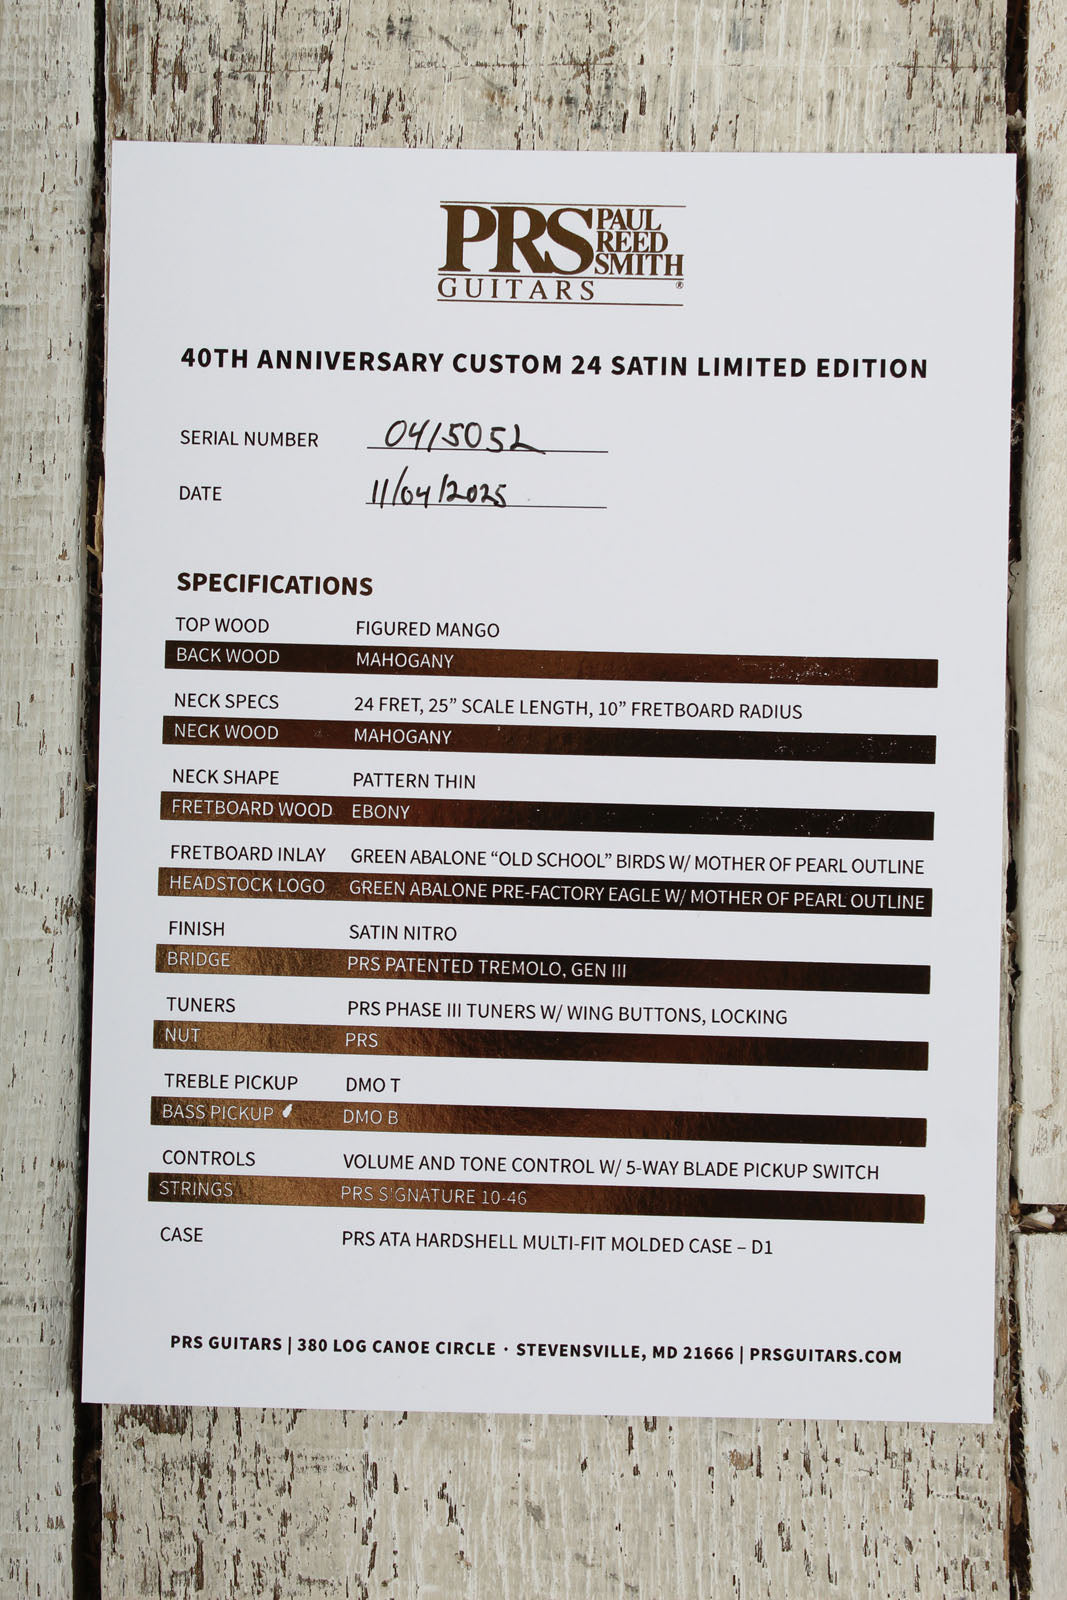 PRS PAUL REED SMITH
GUITARS ®
40TH ANNIVERSARY CUSTOM 24 SATIN LIMITED EDITION
SERIAL NUMBER 0415052
DATE 11/04/2025
SPECIFICATIONS
TOP WOOD FIGURED MANGO
BACK WOOD MAHOGANY
NECK SPECS 24 FRET, 25” SCALE LENGTH, 10” FRETBOARD RADIUS
NECK WOOD MAHOGANY
NECK SHAPE PATTERN THIN
FRETBOARD WOOD EBONY
FRETBOARD INLAY GREEN ABALONE “OLD SCHOOL” BIRDS W/ MOTHER OF PEARL OUTLINE
HEADSTOCK LOGO GREEN ABALONE PRE-FACTORY EAGLE W/ MOTHER OF PEARL OUTLINE
FINISH SATIN NITRO
BRIDGE PRS PATENTED TREMOLO, GEN III
TUNERS PRS PHASE III TUNERS W/ WING BUTTONS, LOCKING
NUT PRS
TREBLE PICKUP DMO T
BASS PICKUP DMO B
CONTROLS VOLUME AND TONE CONTROL W/ 5-WAY BLADE PICKUP SWITCH
STRINGS PRS SIGNATURE 10-46
CASE PRS ATA HARDSHELL MULTI-FIT MOLDED CASE – D1
PRS GUITARS | 380 LOG CANOE CIRCLE · STEVENSVILLE, MD 21666 | PRSGUITARS.COM